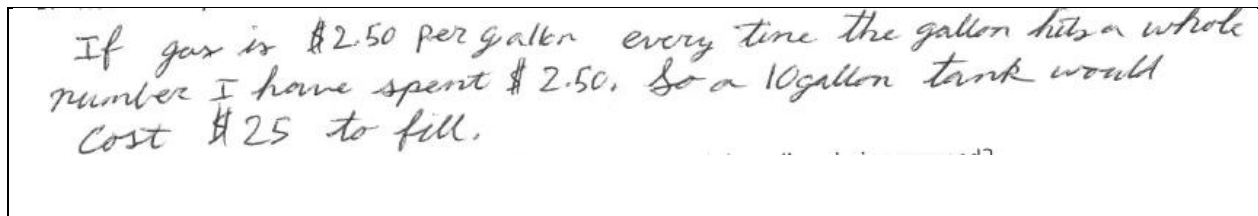 If gas is $2.50 per gallon every time the gallon hits a whole
number I have spent $2.50. So a 10gallon tank would
cost $25 to fill.